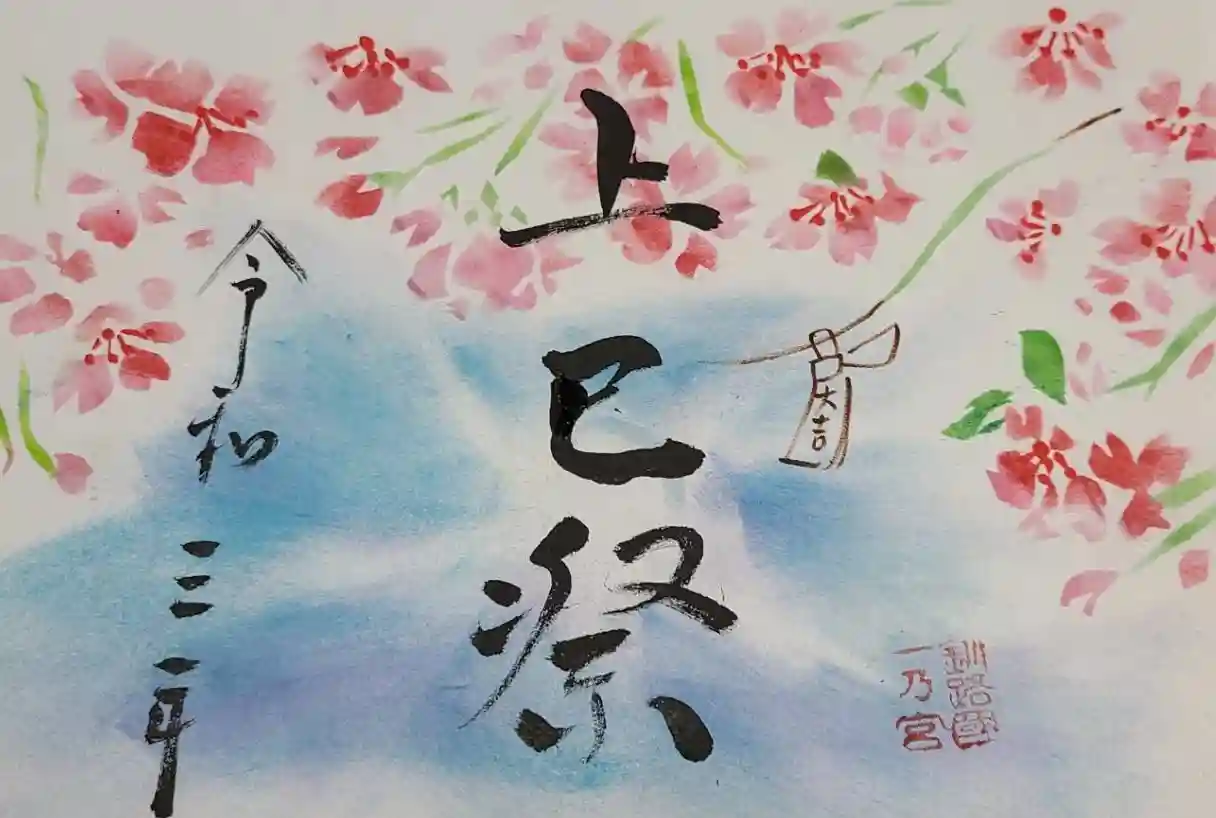 上巳祭
令和三年
大吉
釧路國
一乃宮